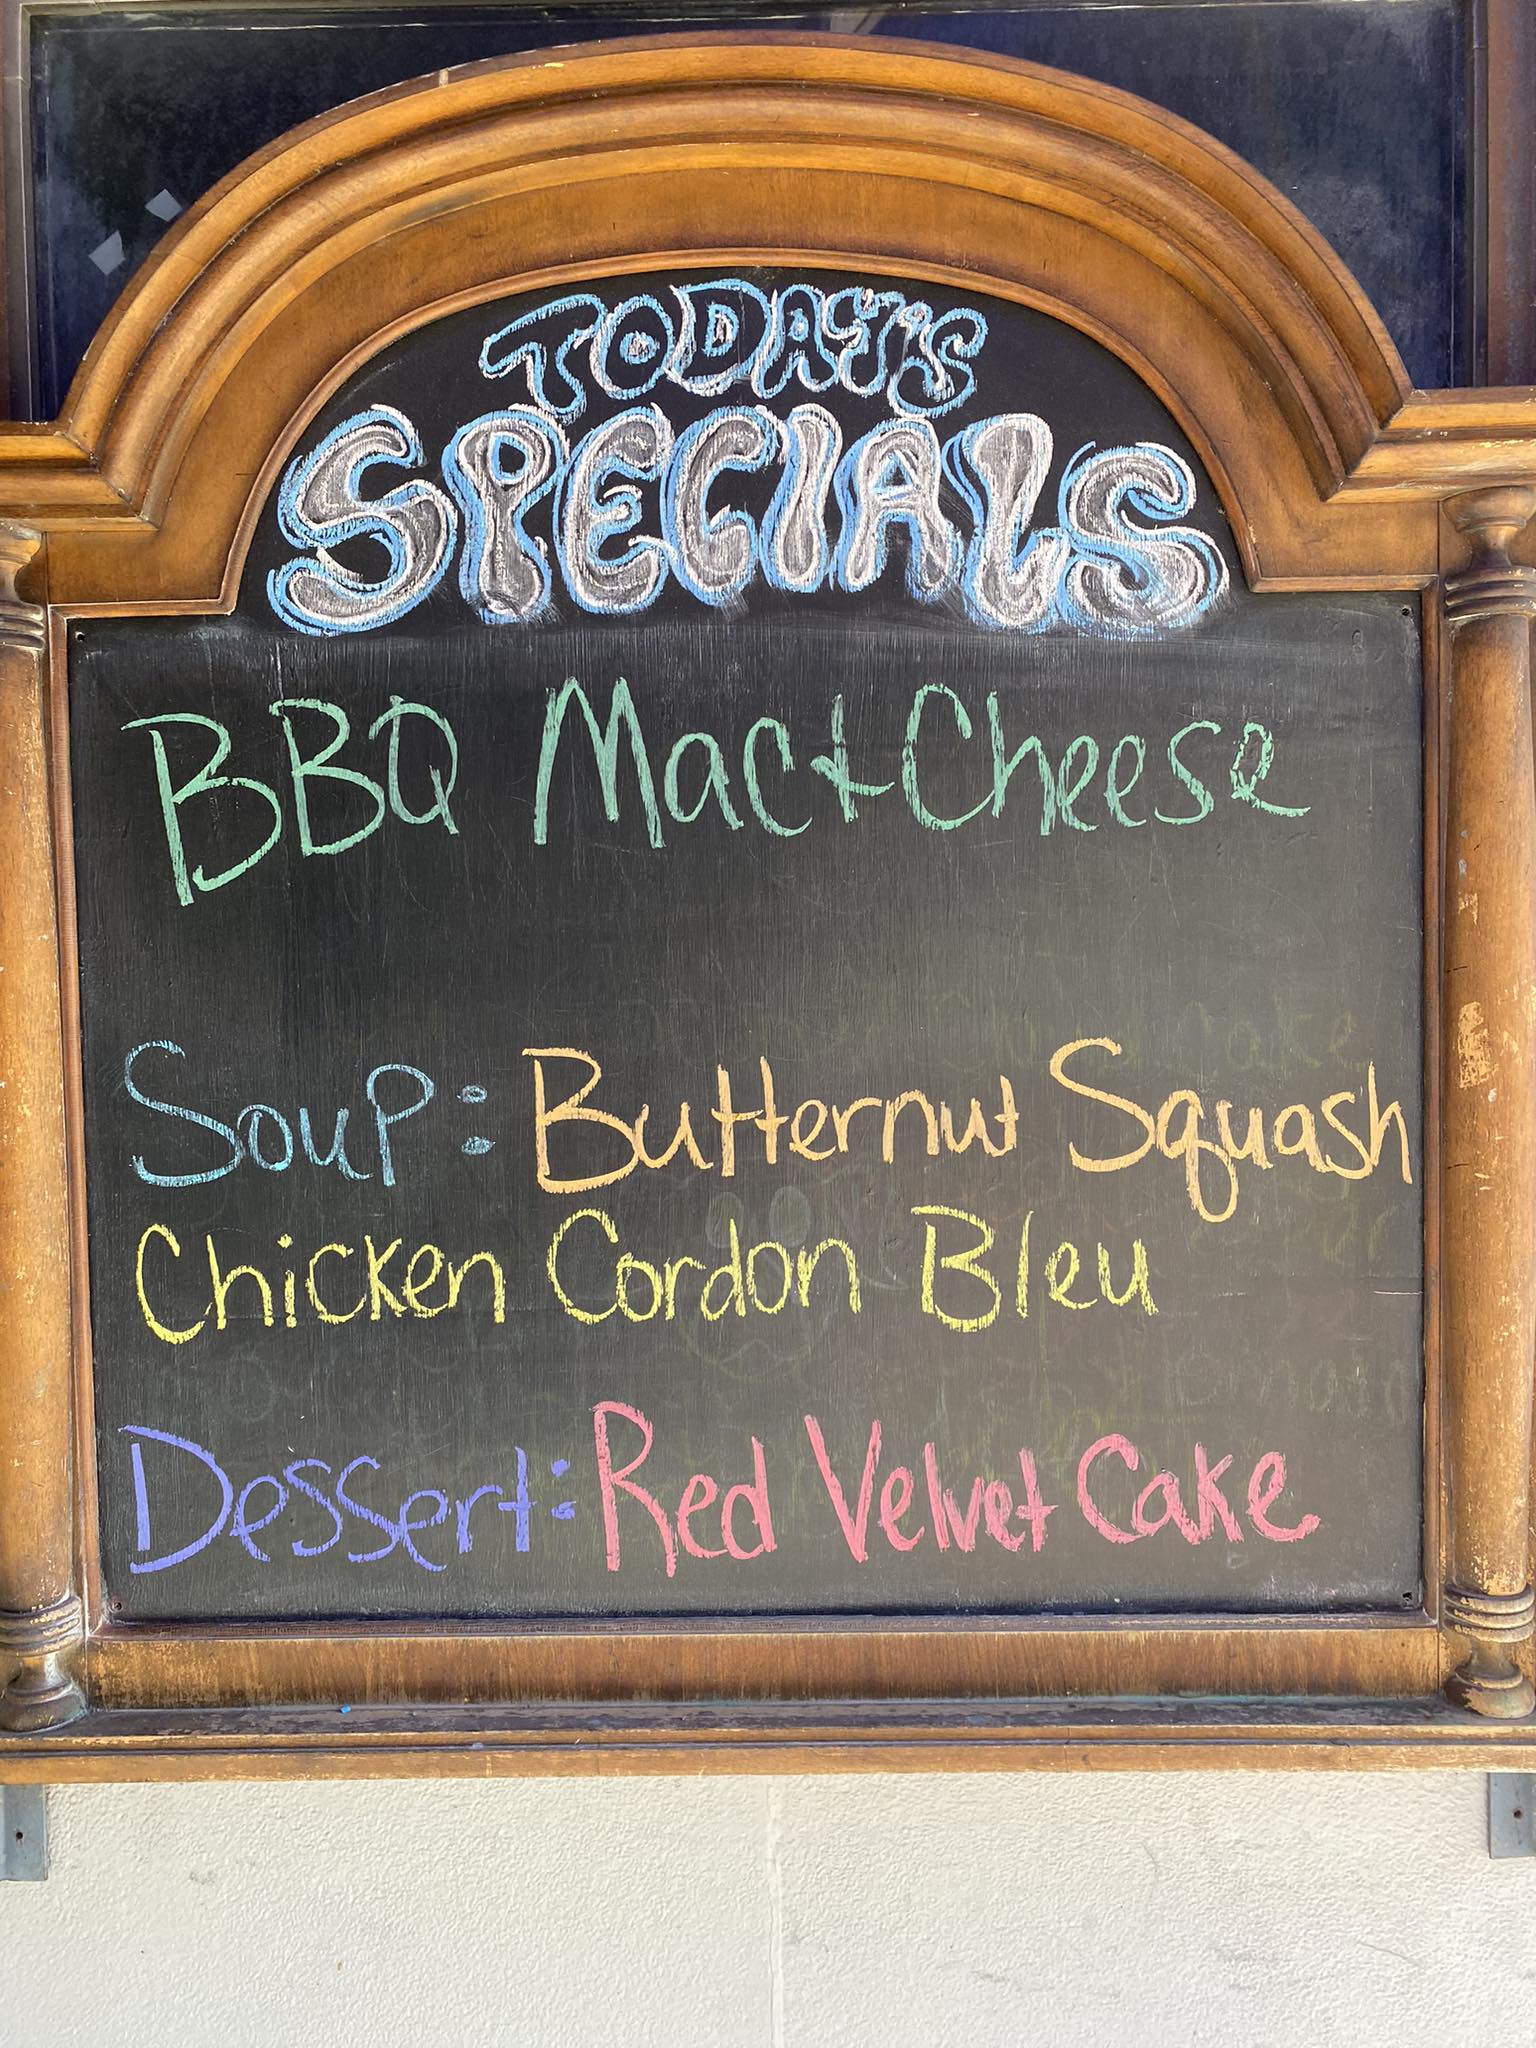 TODAY'S
SPECIALS
BBQ Mac+Cheese
Soup: Butternut Squash
Chicken Cordon Bleu
Dessert: Red Velvet Cake